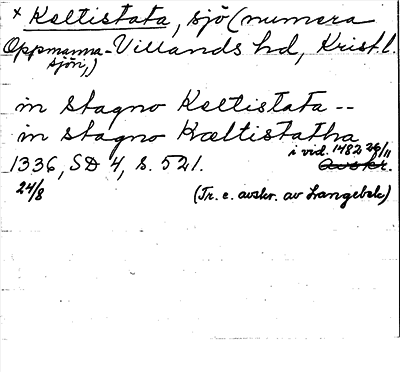 x Keltistata, sjö (numera
Oppmanna- Villands hd, Krist.l.
sjön,)
in stagno Keltistata --
in stagno Kæltistatha
i vid. 1482 26/11
1336, SD 4, s. 521. Avskr.
24/8 (Tr. e. avskr. av Langebek)